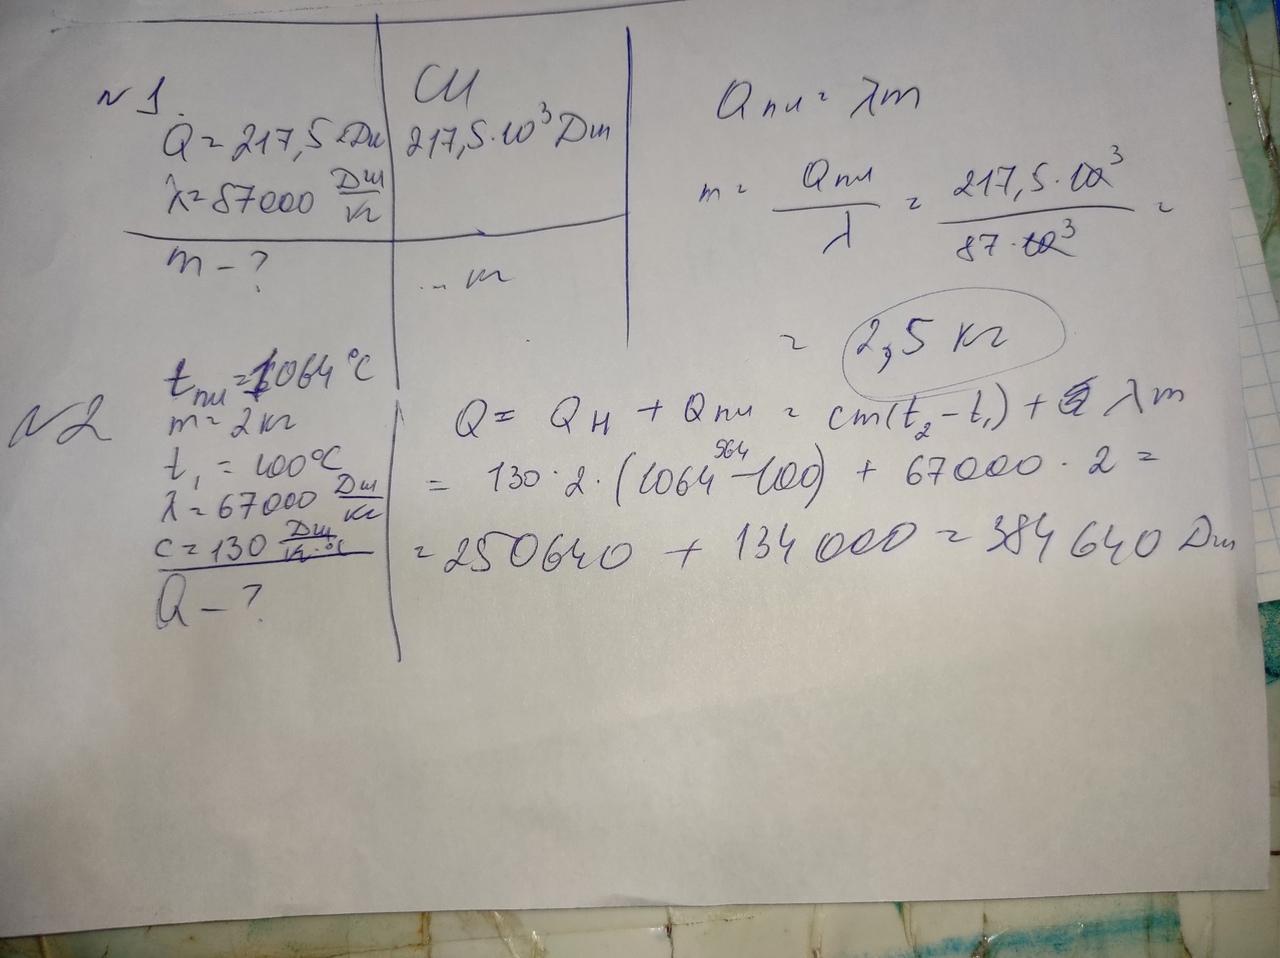 №1.
Q = 217,5 кДж
λ = 87000 Дж/кг
m - ?
СИ
217,5·10³ Дж
... кг
Qпл = λm
m = Qпл/λ = 217,5·10³/87·10³ =
= 2,5 кг
№2
tпл = 1064°C
m = 2 кг
t₁ = 100°C
λ = 67000 Дж/кг
c = 130 Дж/кг·°C
Q - ?
Q = Qн + Qпл = cm(t₂ - t₁) + λm
964
= 130·2·(1064 - 100) + 67000·2 =
= 250640 + 134000 = 384640 Дж